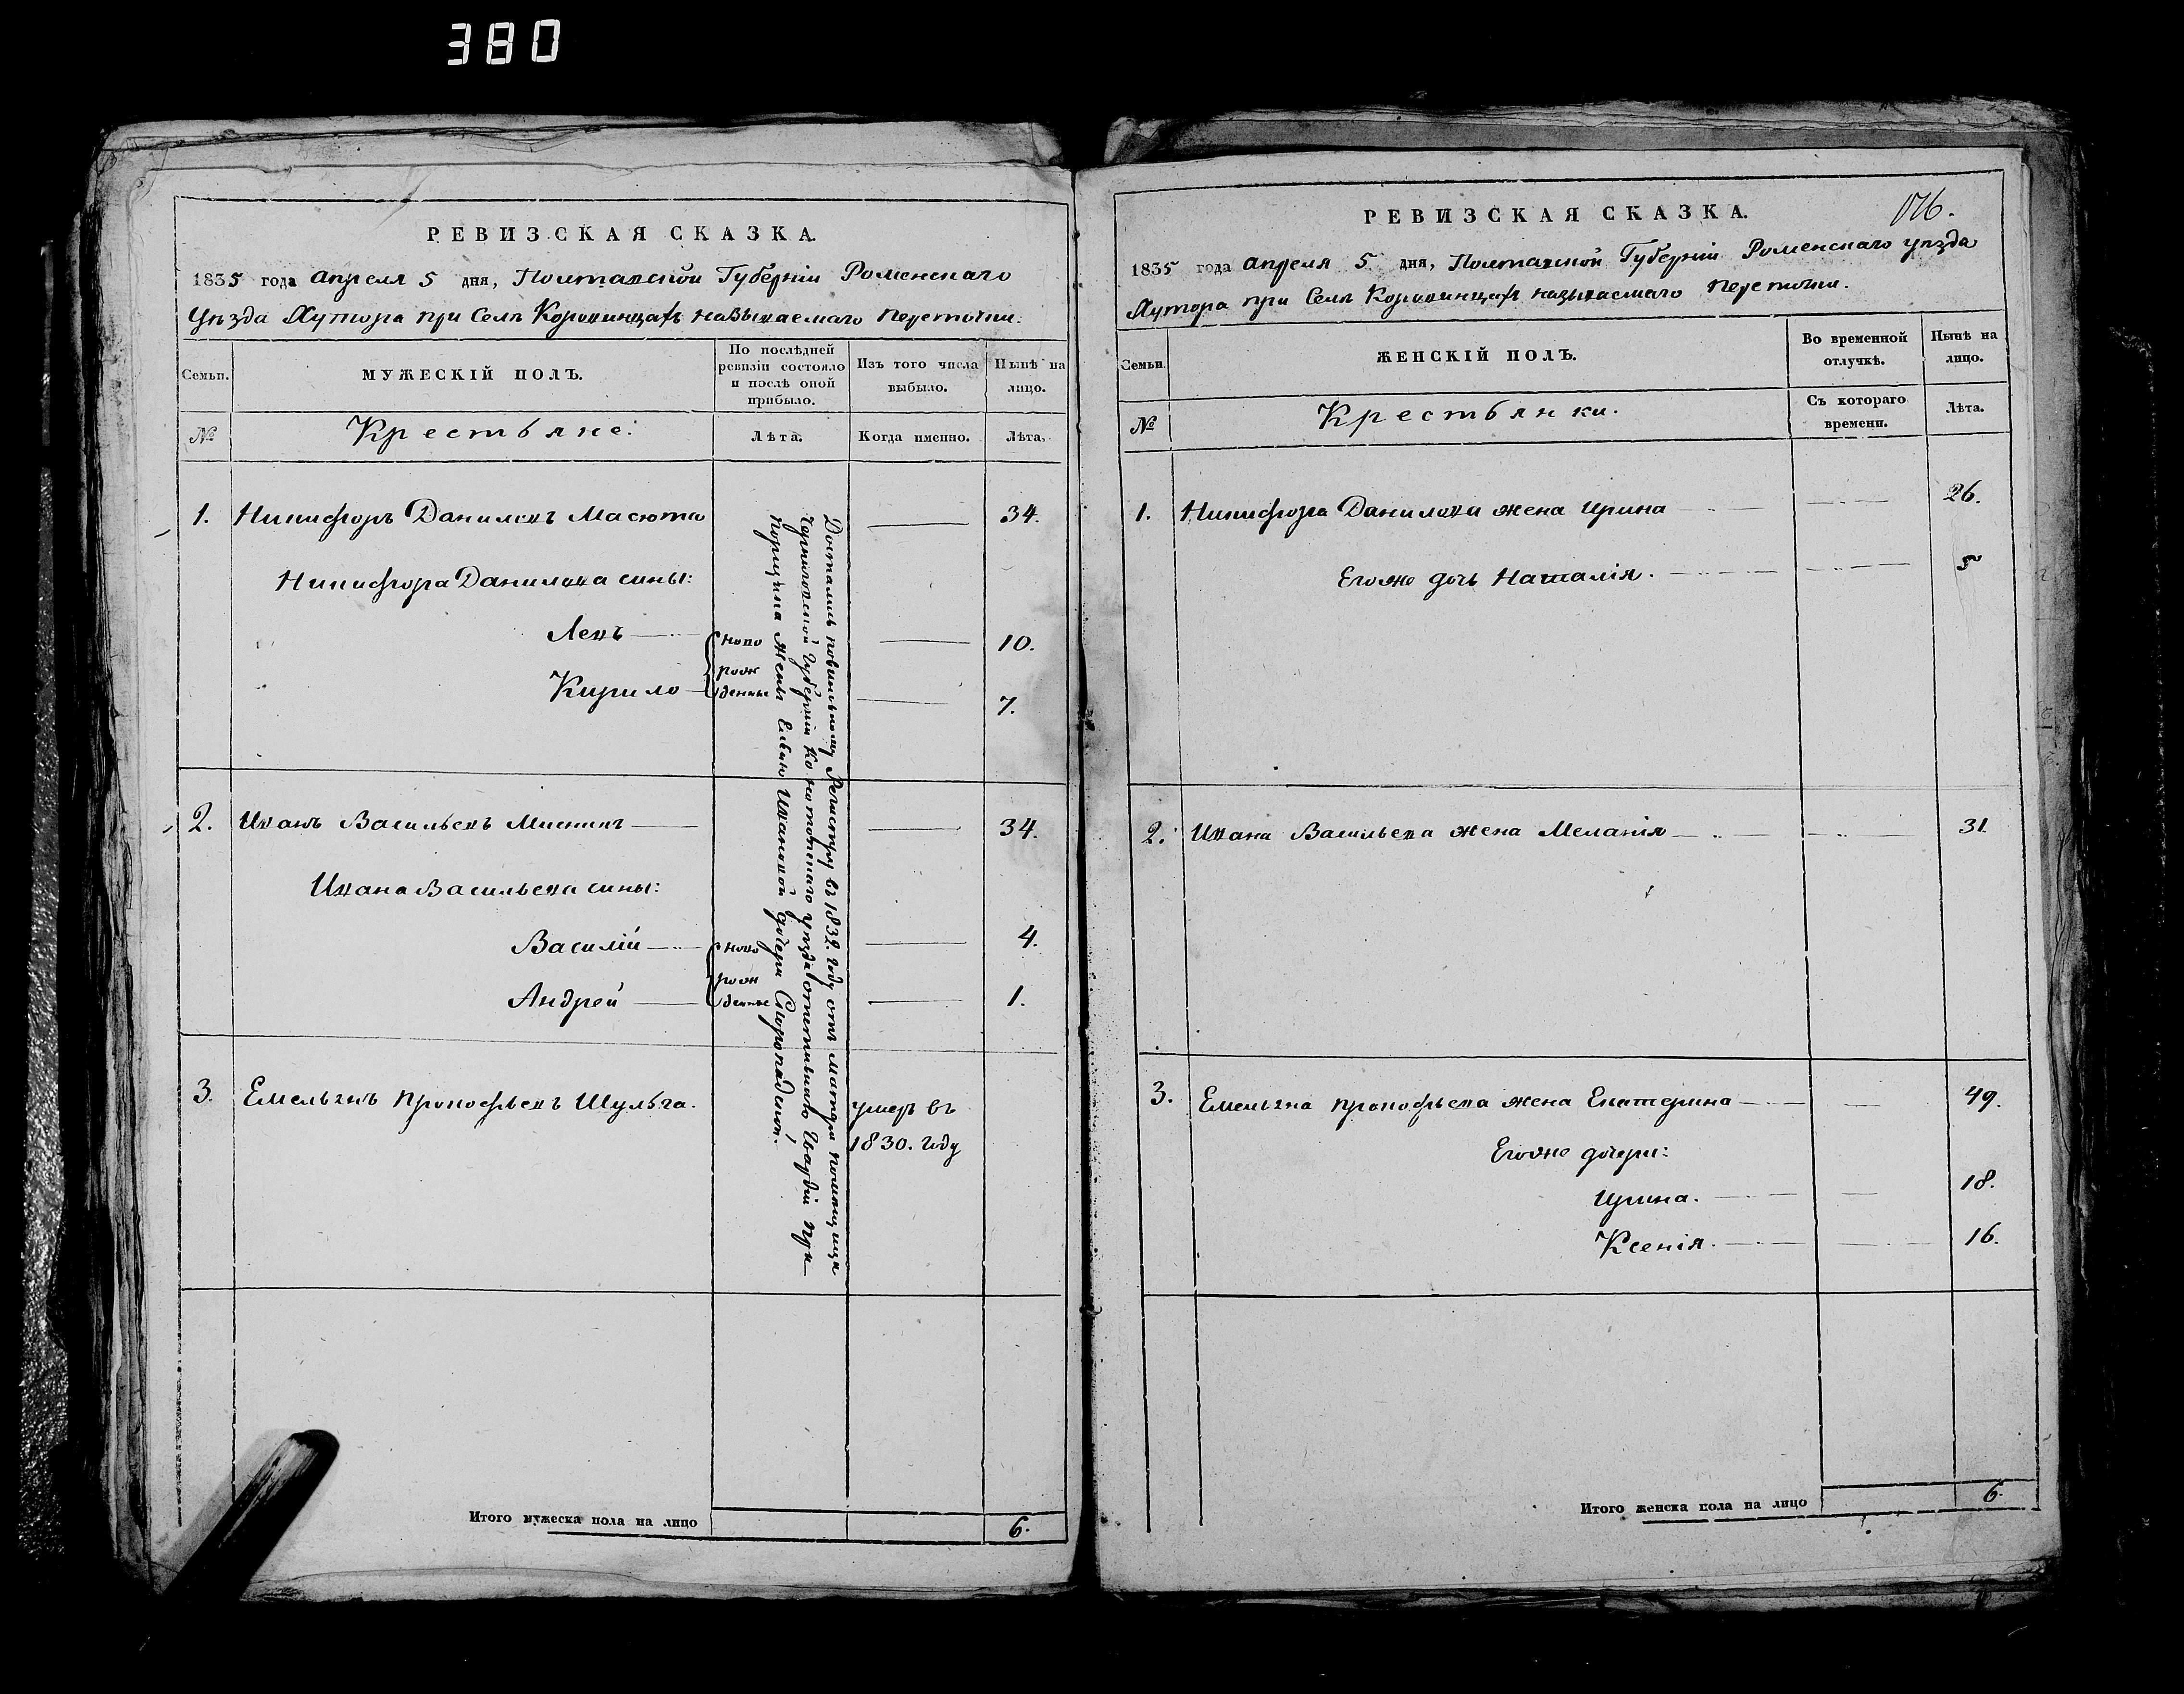 380
РЕВИЗСКАЯ СКАЗКА.
1835 года Апреля 5 дня, Полтавской Губерніи Роменскаго
Уѣзда Хутора при Селѣ Коровинцахъ называемаго Переточки.
Семьи.
МУЖЕСКІЙ ПОЛЪ.
По послѣдней ревизіи состояло и послѣ оной прибыло.
Изъ того числа выбыло.
Нынѣ на лицо.
№
Крестьяне:
Лѣта.
Когда именно.
Лѣта.
1. Никифоръ Даниловъ Масюта 34.
Никифора Данилова сины:
Левъ 10.
Кирило 7.
ново
рож
денные
2. Иванъ Васильевъ 34.
Ивана Васильева сины:
Василій 4.
Андрей 1.
ново
рож
денные
3. Емельянъ Прокофьевъ Шульга. умеръ въ
1830. году
Достались повинному Регистру въ 1832. году отъ матери помещици
Черниговской губерніи Конотопскаго уезда Гвардіи пру
порщика Жены Ивановой дочери Скоропадской.
Итого мужеска пола на лицо 6.
176.
РЕВИЗСКАЯ СКАЗКА.
1835 года Апреля 5 дня, Полтавской Губерніи Роменскаго уѣзда
Хутора при Селѣ Коровинцахъ называемаго Переточки.
Семьи.
ЖЕНСКІЙ ПОЛЪ.
Во временной отлучкѣ.
Нынѣ на лицо.
№
Крестьянки.
Съ котораго времени.
Лѣта.
1. Никифора Данилова жена Ирина 26.
Егожо дочь Наталія. 5
2. Ивана Васильева жена Меланія 31.
3. Емельяна Прокофьева жена Екатерина 49.
Егожо дочери:
Ирина. 18.
Ксенія. 16.
Итого женска пола на лицо 6.